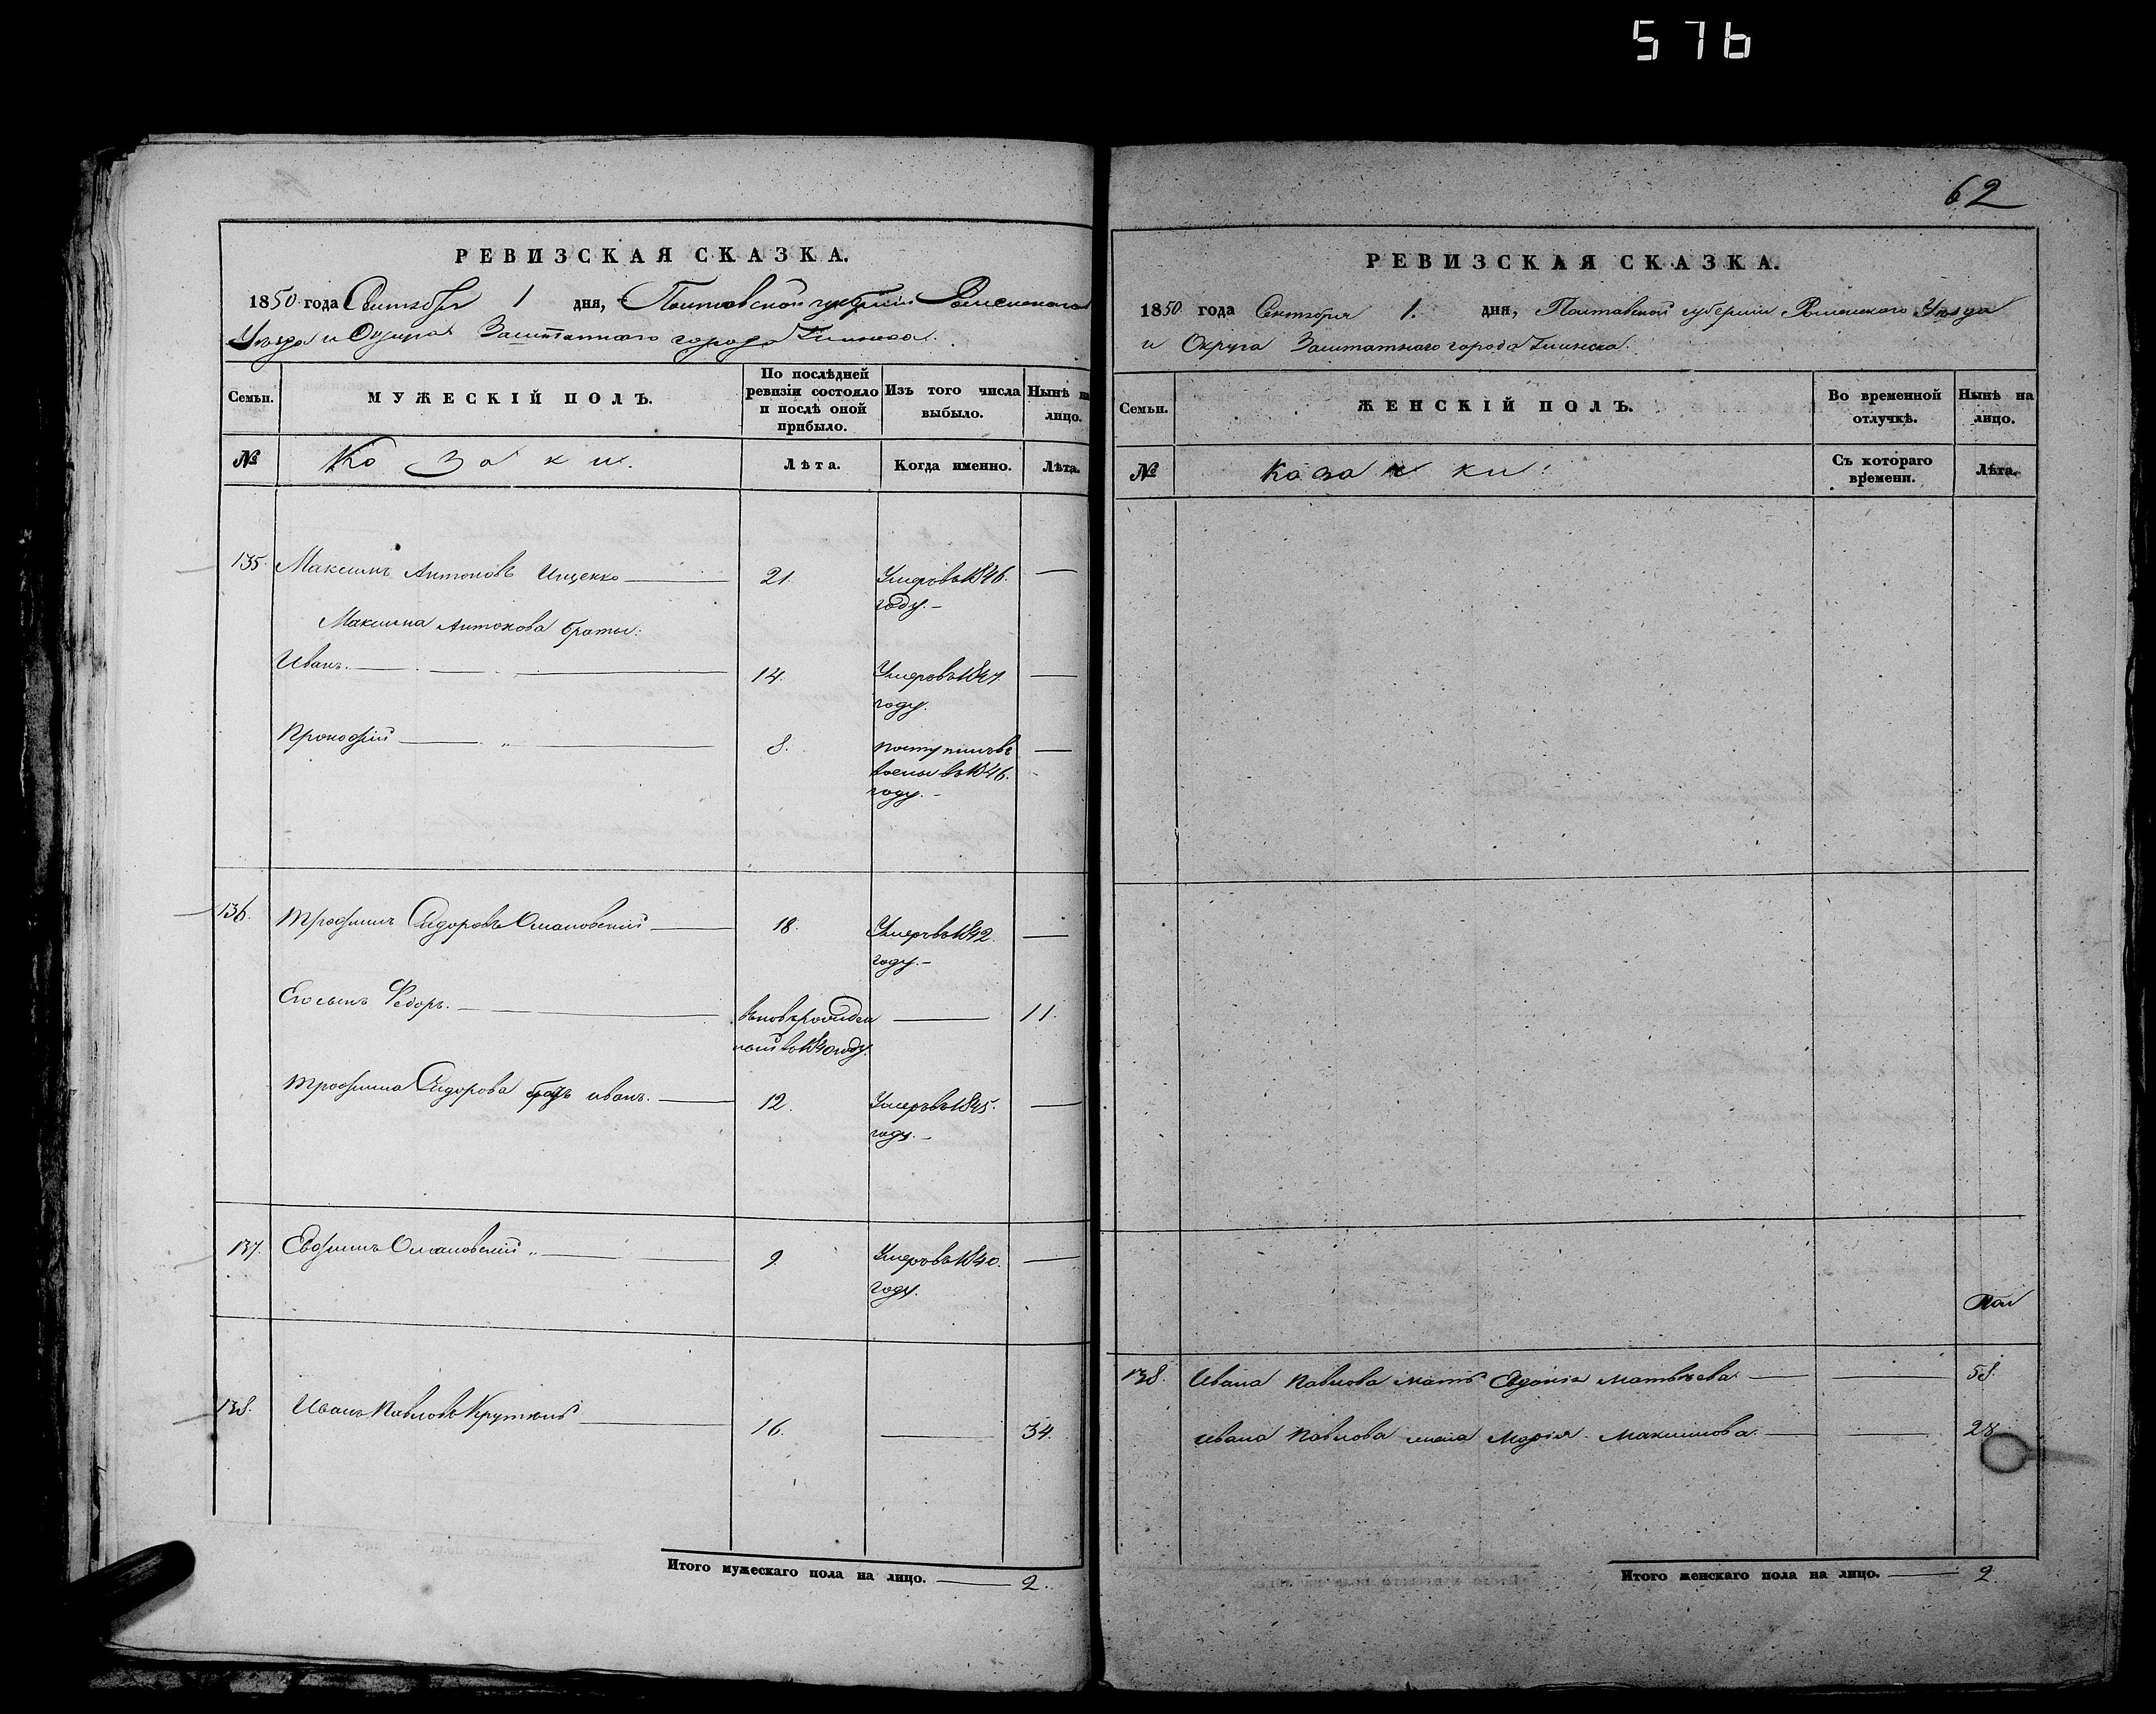 576
РЕВИЗСКАЯ СКАЗКА.
1850 года Сентября 1 дня, Полтавской губернiи Роменского
Уезда и Округа Заштатного города Глинска.
Семьи.
МУЖЕСКIЙ ПОЛЪ.
По послѣдней ревизiи состояло и послѣ оной прибыло.
Изъ того числа выбыло.
Нынѣ на лицо.
№
Козаки.
Лѣта.
Когда именно.
Лѣта.
135. Максимъ Антоновъ Ищенко 21. Умеръ въ 1846.
году.
Максима Антонова братья:
Иванъ. 14. Умеръ въ 1847
году.
Прокофiй 8. поступилъ въ
въ 1846.
году.
136. Трофимъ Сидоровъ Олиновский 18. Умеръ въ 1842.
году.
Его сынъ Федоръ. вновь рожден 11.
ный въ 1840 году.
Трофима Сидорова братъ иванъ. 12. Умеръ въ 1845.
году.
137. Евфимъ 9 Умеръ въ 1840.
году.
138. Иванъ Павловъ Круткий 16. 34.
Итого мужескаго пола на лицо. 2.
62
РЕВИЗСКАЯ СКАЗКА.
1850 года Сентября 1. дня, Полтавской губернiи Роменского Уезда
и Округа Заштатного города Глинска.
Семьи.
ЖЕНСКIЙ ПОЛЪ.
Во временной отлучкѣ.
Нынѣ на лицо.
№
Козачки.
Съ котораго времени.
Лѣта.
138. Ивана Павлова мать Евдокiя Матвѣева 58.
Ивана Павлова жена Марiя Максимова. 28
Итого женскаго пола на лицо. 2.